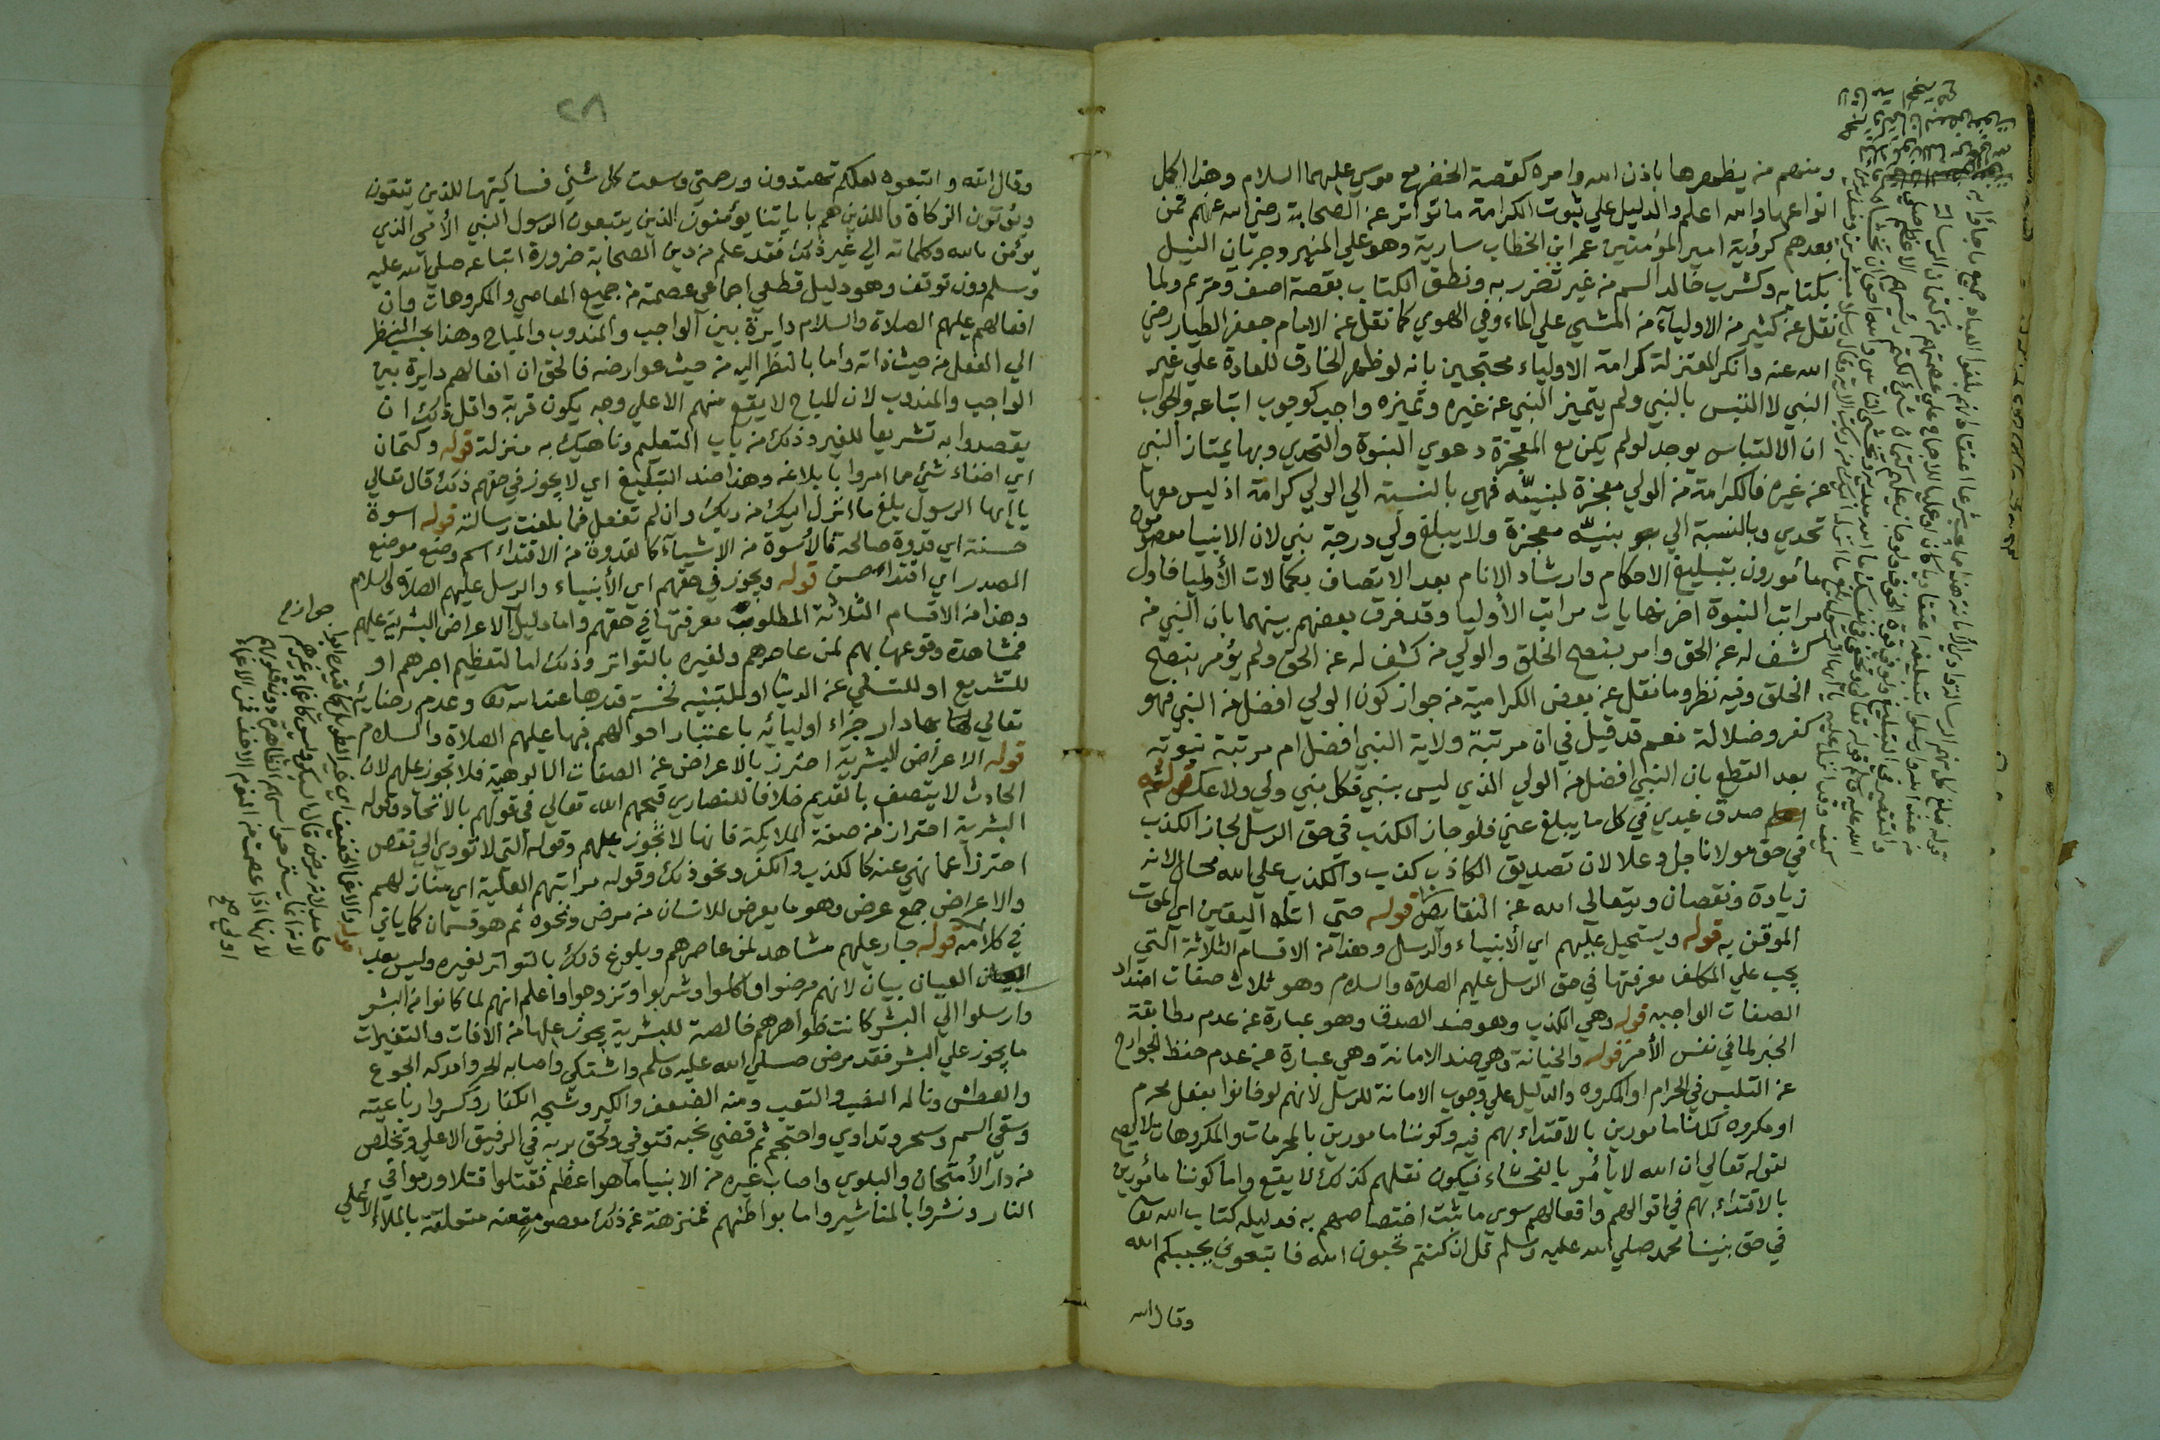 ومنهم من يظهرها باذن الله وامره كقصة الخضر مع موسي عليهما السلام وهذا اكمل
انواعها والله اعلم والدليل علي ثبوت الكرامة ما تواتر عن الصحابة رضي الله عنهم فمن
بعدهم كرؤية امير المؤمنين عمر ابن الخطاب سارية وهو علي المنبر وجريان النيل
بكتابه وكشرب خالد السم من غير تضرر به ونطق الكتاب بقصة اصف ومريم ولما
نقل عن كثير من الاولياء من المشي علي الماء وفي الهوي كما نقل عن الامام جعفر الطيار رضي
الله عنه وانكر المعتزلة كرامة الاولياء محتجين بانه لو ظهر الخارق للعادة علي غير
النبي لا التبس بالنبي ولم يتميز النبي عن غيره وتميزه واجب كوجوب اتباعه والجواب
ان الالتباس يوجد لو لم يكن مع المعجزة دعوي النبوة والتحدي وبها يمتاز النبي
عن غيره فالكرامة من الولي معجزة لنبيه فهي بالنسبة الي الولي كرامة اذ ليس معها
تحدي وبالنسبة الي نبيه معجزة ولا يبلغ ولي درجة نبي لان الانبيا معصومون
مأمورون بتبليغ الاحكام وارشاد الانام بعد الاتصاف بكمالات الأوليا فاول
مراتب النبوة اخر نهايات مراتب الأوليا وقد فرق بعضهم بينهما بان النبي من
كشف له عن الحق وامر بنصح الخلق والولي من كشف له عن الحق ولم يؤمر بنصح
الخلق وفيه نظر وما نقل عن بعض الكرامية من جواز كون الولي افضل من النبي فهو
كفر وضلالة نعم قد قيل في ان مرتبة ولاية النبي افضل ام مرتبة نبوته
بعد القطع بان النبي افضل من الولي الذي ليس بنبي فكل نبي ولي ولا عكس قوله
صدق عبدي في كل ما يبلغ عني فلو جاز الكذب في حق الرسل لجاز الكذب
في حق مولانا جل وعلا لان تصديق الكاذب كذب والكذب علي الله محال لانه
زيادة ونقصان ويتعالى الله عن النقايص قوله حتي اتاه اليقين اي الموت
الموقن به قوله ويستحيل عليهم اي الأنبياء والرسل وهذا من الاقسام الثلاثة التي
يجب علي المكلف معرفتها في حق الرسل عليهم الصلاة والسلام وهو ثلاث صفات اضداد
الصفات الواجبه قوله وهي الكذب وهو ضد الصدق وهو عبارة عن عدم مطابقة
الخبر لما في نفس الأمر قوله والخيانة وهي ضد الامانة وهي عبارة عن عدم حفظ الجوارح
عن التلبس في الحرام او المكروه والدليل علي وجوب الامانة للرسل لأنهم لو خانوا بفعل محرم
او مكروه لكنا مامورين بالاقتداء بهم فيه وكوننا مامورين بالمحرمات والمكروهات لا يصح
لقوله تعالي ان الله لا يأمر بالفحشاء فيكون فعلهم كذلك لا يقع واما كوننا مأمورين
بالاقتداء بهم في اقوالهم وافعالهم سوي ما ثبت اختصاصهم به فدليله كتاب الله تعا
في حق نبينا محمد صلي الله عليه وسلم قل ان كنتم تحبون الله فاتبعوني يحببكم الله
وقال الله
٢٨
وقال الله واتبعوه لعلكم تهتدون ورحمتي وسعت كل شئي فساكتبها للذين يتقون
ويؤتون الزكاة والذين هم باياتنا يؤمنون الذين يتبعون الرسول النبي الأمي الذي
يؤمن بالله وكلماته الي غير ذلك فقد علم من دين الصحابة ضرورة اتباعه صلي الله عليه
وسلم دون توقف وهو دليل قطعي اجماعي عصمته من جميع المعاصي والمكروهات وان
افعالهم عليهم الصلاة والسلام دايرة بين الواجب والمندوب والمباح وهذا بحسب النظر
الي الفعل من حيث ذاته واما بالنظر اليه من حيث عوارضه فالحق ان افعالهم دايرة بين
الواجب والمندوب لان المباح لا يقع منهم الا علي وجه يكون قربة واقل ذلك ان
يقصدوا به تشريعا للغير وذلك من باب التعليم وناهيك به منزلة قوله وكتمان
اي اخفاء شئي مما امروا بابلاغه وهذا ضد التبليغ اي لا يجوز في حقهم ذلك قال تعالي
ياايها الرسول بلغ ما انزل اليك من ربك وان لم تفعل فما بلغت رسالته قوله اسوة
حسنة اي قدوة صالحة فالأسوة من الأشياء كالقدوة من الاقتداء اسم وضع موضع
المصدر اي اقتداء حسن قوله ويجوز في حقهم اي الأنبياء والرسل عليهم الصلاة والسلام
وهذا من الاقسام الثلاثة المطلوب معرفتها في حقهم واما دليل الاعراض البشرية عليهم
فمشاهدة وقوعها بهم لمن عاصرهم ولغيره بالتواتر وذلك اما لتعظيم اجرهم او
للتشريع او للتسلي عن الدنيا او للتنبيه لخسة قدرها عند الله تعا وعدم رضا ربه
تعالي بها دار جزاء اوليائه باعتبار احوالهم فيها عليهم الصلاة والسلام
قوله الاعراض البشرية احترز بالاعراض عن الصفات الالوهية فلا تجوز عليهم لان
الحادث لا يتصف بالقديم خلافا للنصاري قبحهم الله تعالي في قولهم بالاتحاد وقوله
البشرية احتراز من صفة الملائكة فانها لا تجوز عليهم وقوله التي لا تودي الي نقص
احترزا عما نهي عنه كالكذب والكفر ونحو ذلك وقوله مراتبهم العلية اي منازلهم
والاعراض جمع عرض وهو ما يعرض للانسان من مرض ونحوه ثم هو قسمان كما ياتي
في كلامه قوله جار عليهم مشاهد لمن عاصرهم وبلوغ ذلك بالتواتر لغيره وليس بعد
العيان بيان لانهم مرضوا واكلوا وشربوا وتزوجوا واعلم انهم لما كانوا من البشر
وارسلوا الي البشر كانت ظواهرهم خالصة للبشرية يجوز عليها من الآفات والتغيرات
ما يجوز علي البشر فقد مرض صلي الله عليه وسلم واشتكي واصابه الحر وادركه الجوع
والعطش وناله الغضب والتعب ومنه الضعف والكبر وشجه الكفار وكسروا رباعيته
وسقي السم وسحر وتداوي واحتجم ثم قضي نحبه فتوفي ولحق بربه في الرفيق الاعلي وتخلص
من دار الأمتحان والبلوي واصاب غيره من الانبيا ما هو اعظم فقتلوا قتلا ورموا في
النار ونشروا بالمناشير واما بواطنهم فمنزهة عن ذلك معصومة منه متعلقة بالملاء الأعلي